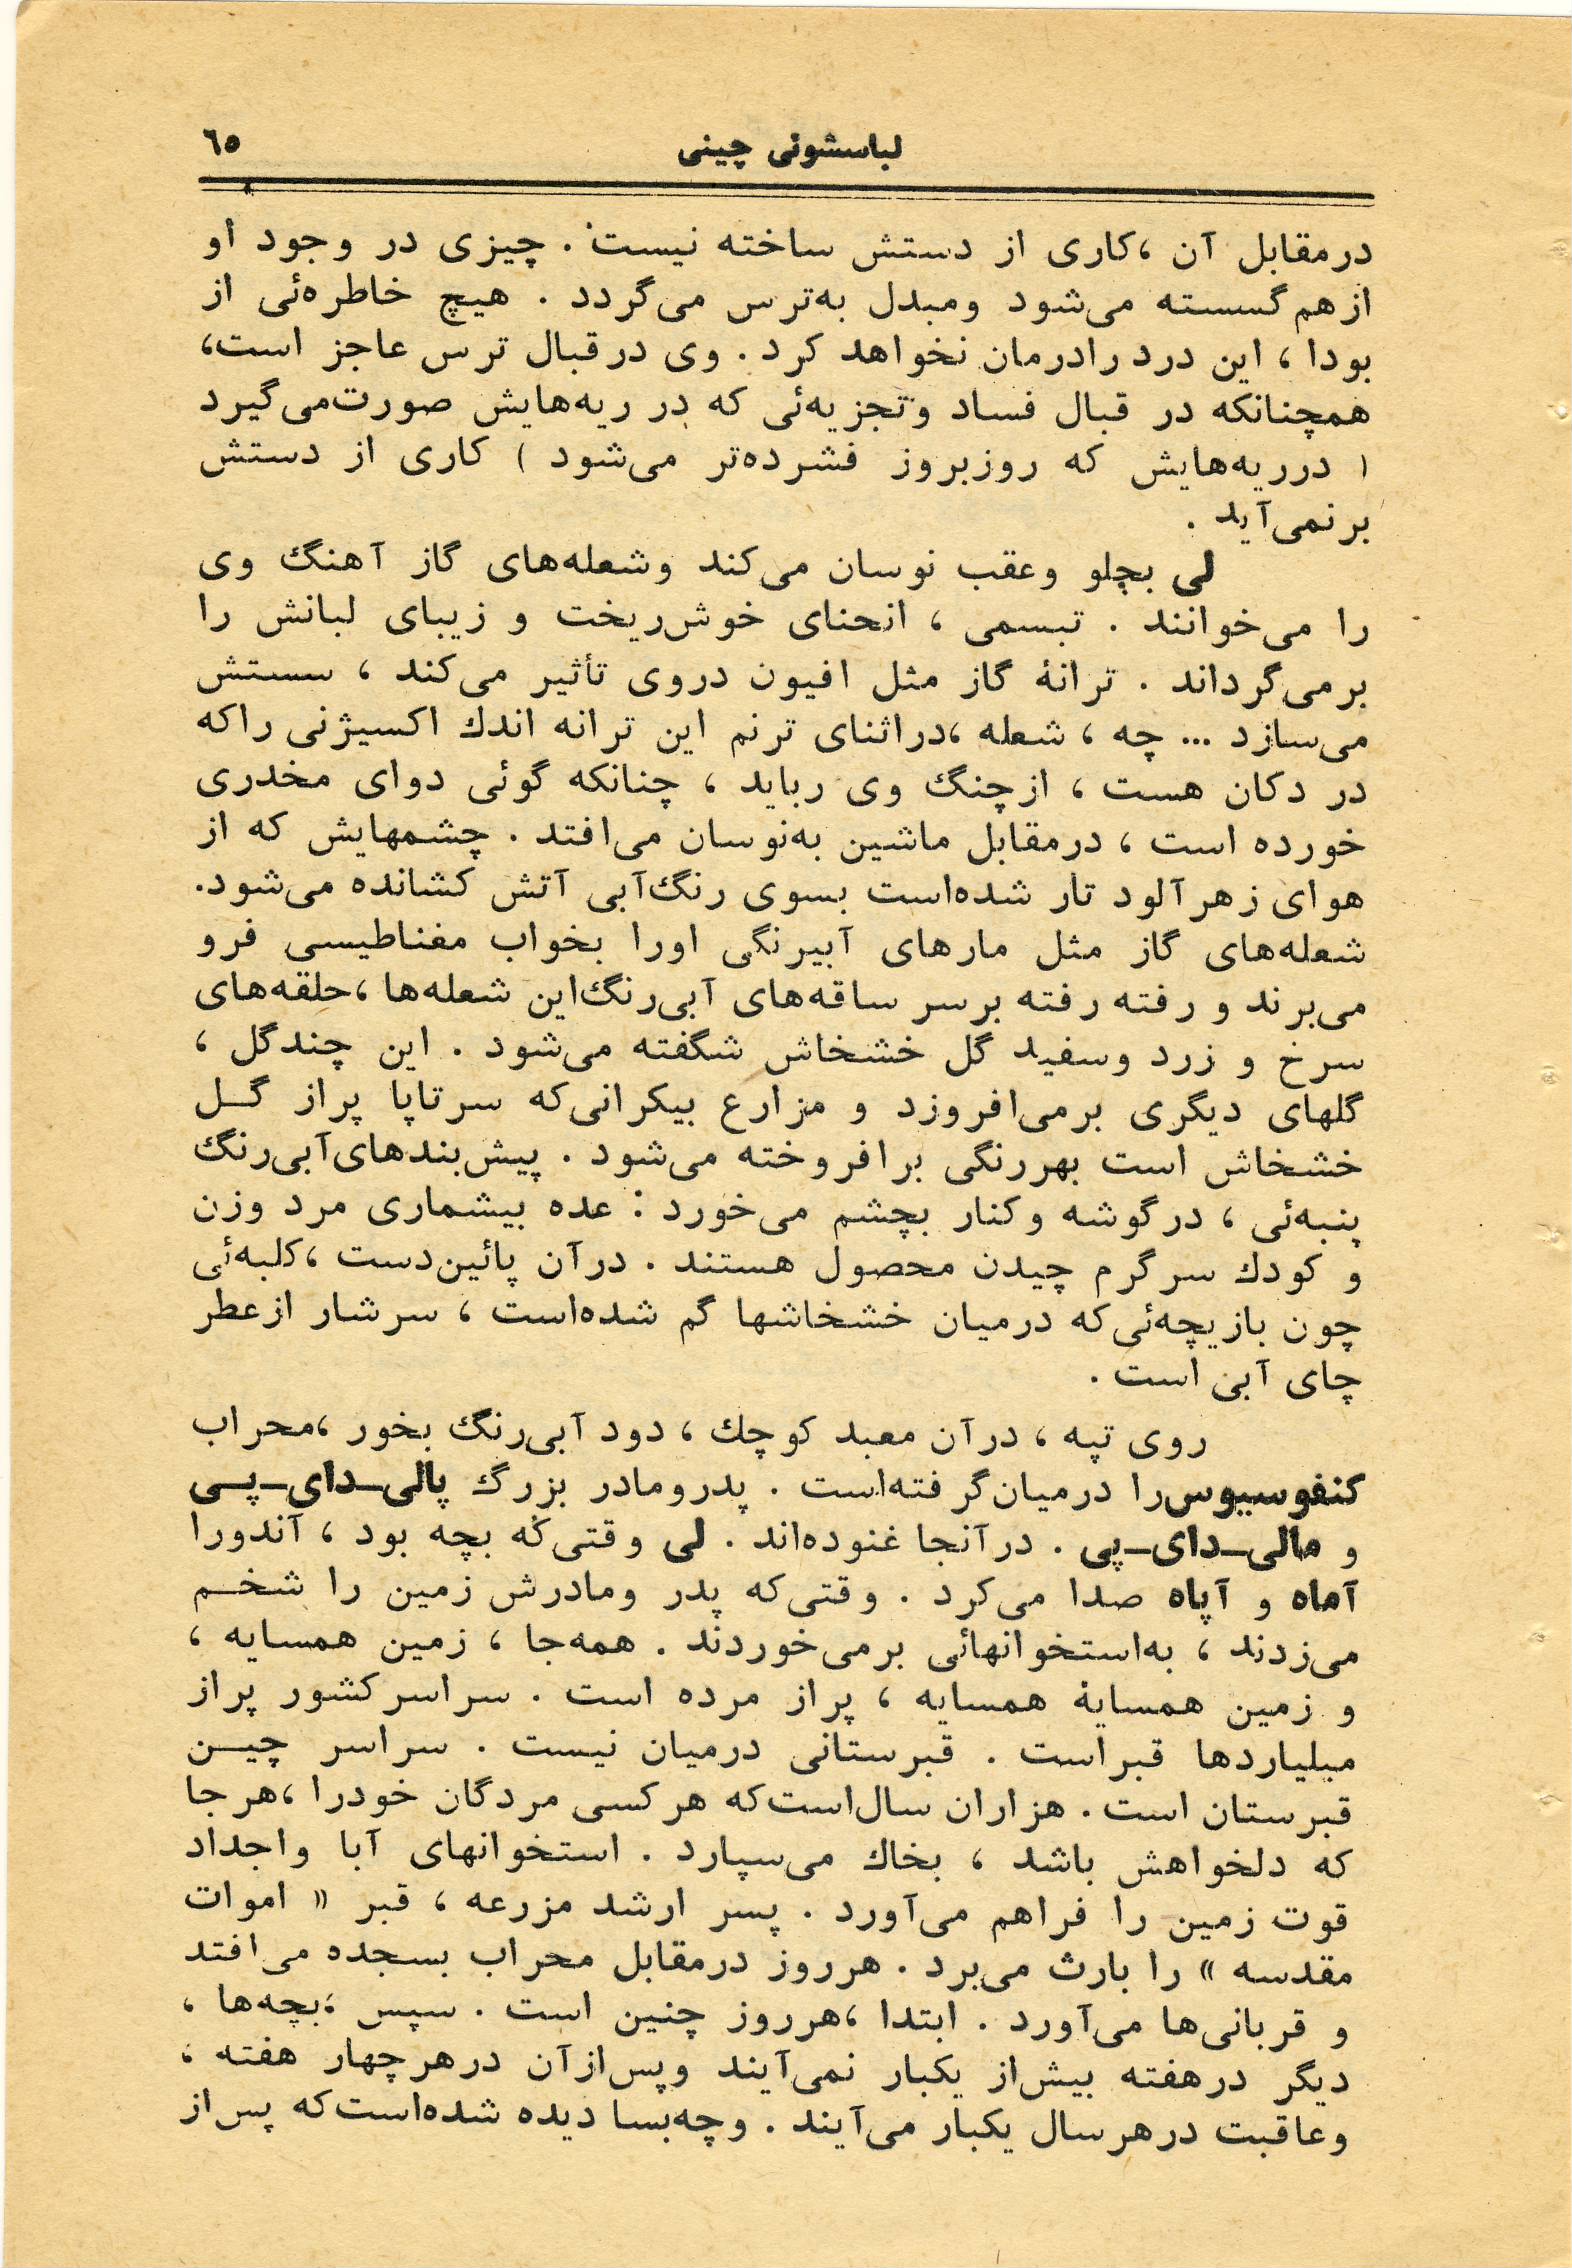 لباسشوئی چینی ٦٥
درمقابل آن ،کاری از دستش ساخته نیست . چیزی در وجود او
ازهم گسسته می‌شود ومبدل به‌ترس می‌گردد . هیچ خاطره‌ئی از
بودا ، این درد رادرمان نخواهد کرد . وی درقبال ترس عاجز است،
همچنانکه در قبال فساد وتجزیه‌ئی که در ریه‌هایش صورت‌می‌گیرد
( درریه‌هایش که روزبروز فشرده‌تر می‌شود ) کاری از دستش
برنمی‌آید .
لی بجلو وعقب نوسان می‌کند وشعله‌های گاز آهنگ وی
را می‌خوانند . تبسمی ، انحنای خوش‌ریخت و زیبای لبانش را
برمی‌گرداند . ترانهٔ گاز مثل افیون دروی تأثیر می‌کند ، سستش
می‌سازد ... چه ، شعله ،دراثنای ترنم این ترانه اندك اکسیژنی راکه
در دکان هست ، ازچنگ وی رباید ، چنانکه گوئی دوای مخدری
خورده است ، درمقابل ماشین به‌نوسان می‌افتد . چشمهایش که از
هوای زهرآلود تار شده‌است بسوی رنگ‌آبی آتش کشانده می‌شود.
شعله‌های گاز مثل مارهای آبیرنگی اورا بخواب مغناطیسی فرو
می‌برند و رفته رفته برسر ساقه‌های آبی‌رنگ‌این شعله‌ها ،حلقه‌های
سرخ و زرد وسفید گل خشخاش شگفته می‌شود . این چندگل ،
گلهای دیگری برمی‌افروزد و مزارع بیکرانی‌که سرتاپا پراز گـل
خشخاش است بهررنگی برافروخته می‌شود . پیش‌بندهای‌آبی‌رنگ
پنبه‌ئی ، درگوشه وکنار بچشم می‌خورد : عده بیشماری مرد وزن
و کودك سرگرم چیدن محصول هستند . درآن پائین‌دست ،کلبه‌ئی
چون بازیچه‌ئی‌که درمیان خشخاشها گم شده‌است ، سرشار ازعطر
چای آبی است .
روی تپه ، درآن معبد کوچك ، دود آبی‌رنگ بخور ،محراب
کنفوسیوس‌را درمیان‌گرفته‌است . پدرومادر بزرگ پالی_دای_پـی
و مالی_دای_پی . درآنجا غنوده‌اند . لی وقتی‌که بچه بود ، آندورا
آماه و آپاه صدا می‌کرد . وقتی‌که پدر ومادرش زمین را شخـم
می‌زدند ، به‌استخوانهائی برمی‌خوردند . همه‌جا ، زمین همسایه ،
و زمین همسایهٔ همسایه ، پراز مرده است . سراسرکشور پراز
میلیاردها قبراست . قبرستانی درمیان نیست . سراسر چیـن
قبرستان است . هزاران سال‌است‌که هرکسی مردگان خودرا ،هرجا
که دلخواهش باشد ، بخاك می‌سپارد . استخوانهای آبا واجداد
قوت زمین را فراهم می‌آورد . پسر ارشد مزرعه ، قبر « اموات
مقدسه » را بارث می‌برد . هرروز درمقابل محراب بسجده می‌افتد
و قربانی‌ها می‌آورد . ابتدا ،هرروز چنین است . سپس ،بچه‌ها ،
دیگر درهفته بیش‌از یکبار نمی‌آیند وپس‌ازآن درهرچهار هفته ،
وعاقبت درهرسال یکبار می‌آیند . وچه‌بسا دیده شده‌است‌که پس‌از